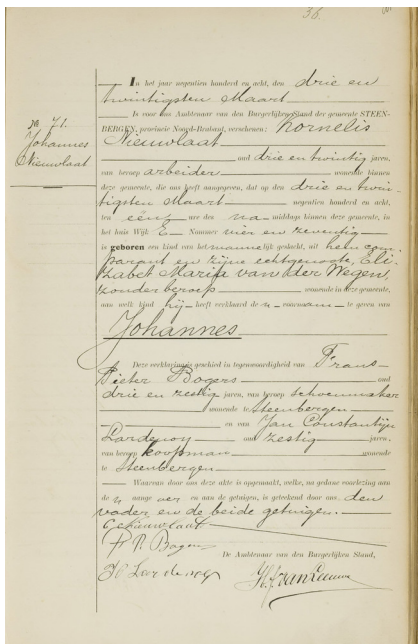 36.
In het jaar negentien honderd en acht, den drie en
twintigsten Maart
Is voor ons Ambtenaar van den Burgerlijken Stand der gemeente STEEN-
BERGEN, provincie Noord-Brabant, verschenen: Kornelis
No 71.
Johannes
Nieuwlaat
Nieuwlaat
oud drie en twintig jaren,
van beroep arbeider wonende binnen
deze gemeente, die ons heeft aangegeven, dat op den drie en twin-
tigsten Maart negentien honderd en acht,
ten één ure des na middags binnen deze gemeente, in
het huis Wijk E Nummer vier en zeventig
is geboren een kind van het mannelijk geslacht, uit hem com-
parant en zijne echtgenoote, Eli-
zabet Maria van der Wegen,
zonder beroep wonende in deze gemeente,
aan welk kind hij heeft verklaard de n voornaam te geven van
Johannes
Deze verklaring is geschied in tegenwoordigheid van Frans
Pieter Bogers oud
drie en zestig jaren, van beroep schoenmaker
wonende te Steenbergen
en van Jan Constantijn
Lardenoy oud zestig jaren,
van beroep koopman wonende
te Steenbergen
Waarvan door ons deze akte is opgemaakt, welke, na gedane voorlezing aan
de n aange ver en aan de getuigen, is geteekend door ons, den
vader, en de beide getuigen.
C Nieuwlaat
F. P. Bogers
De Ambtenaar van den Burgerlijken Stand,